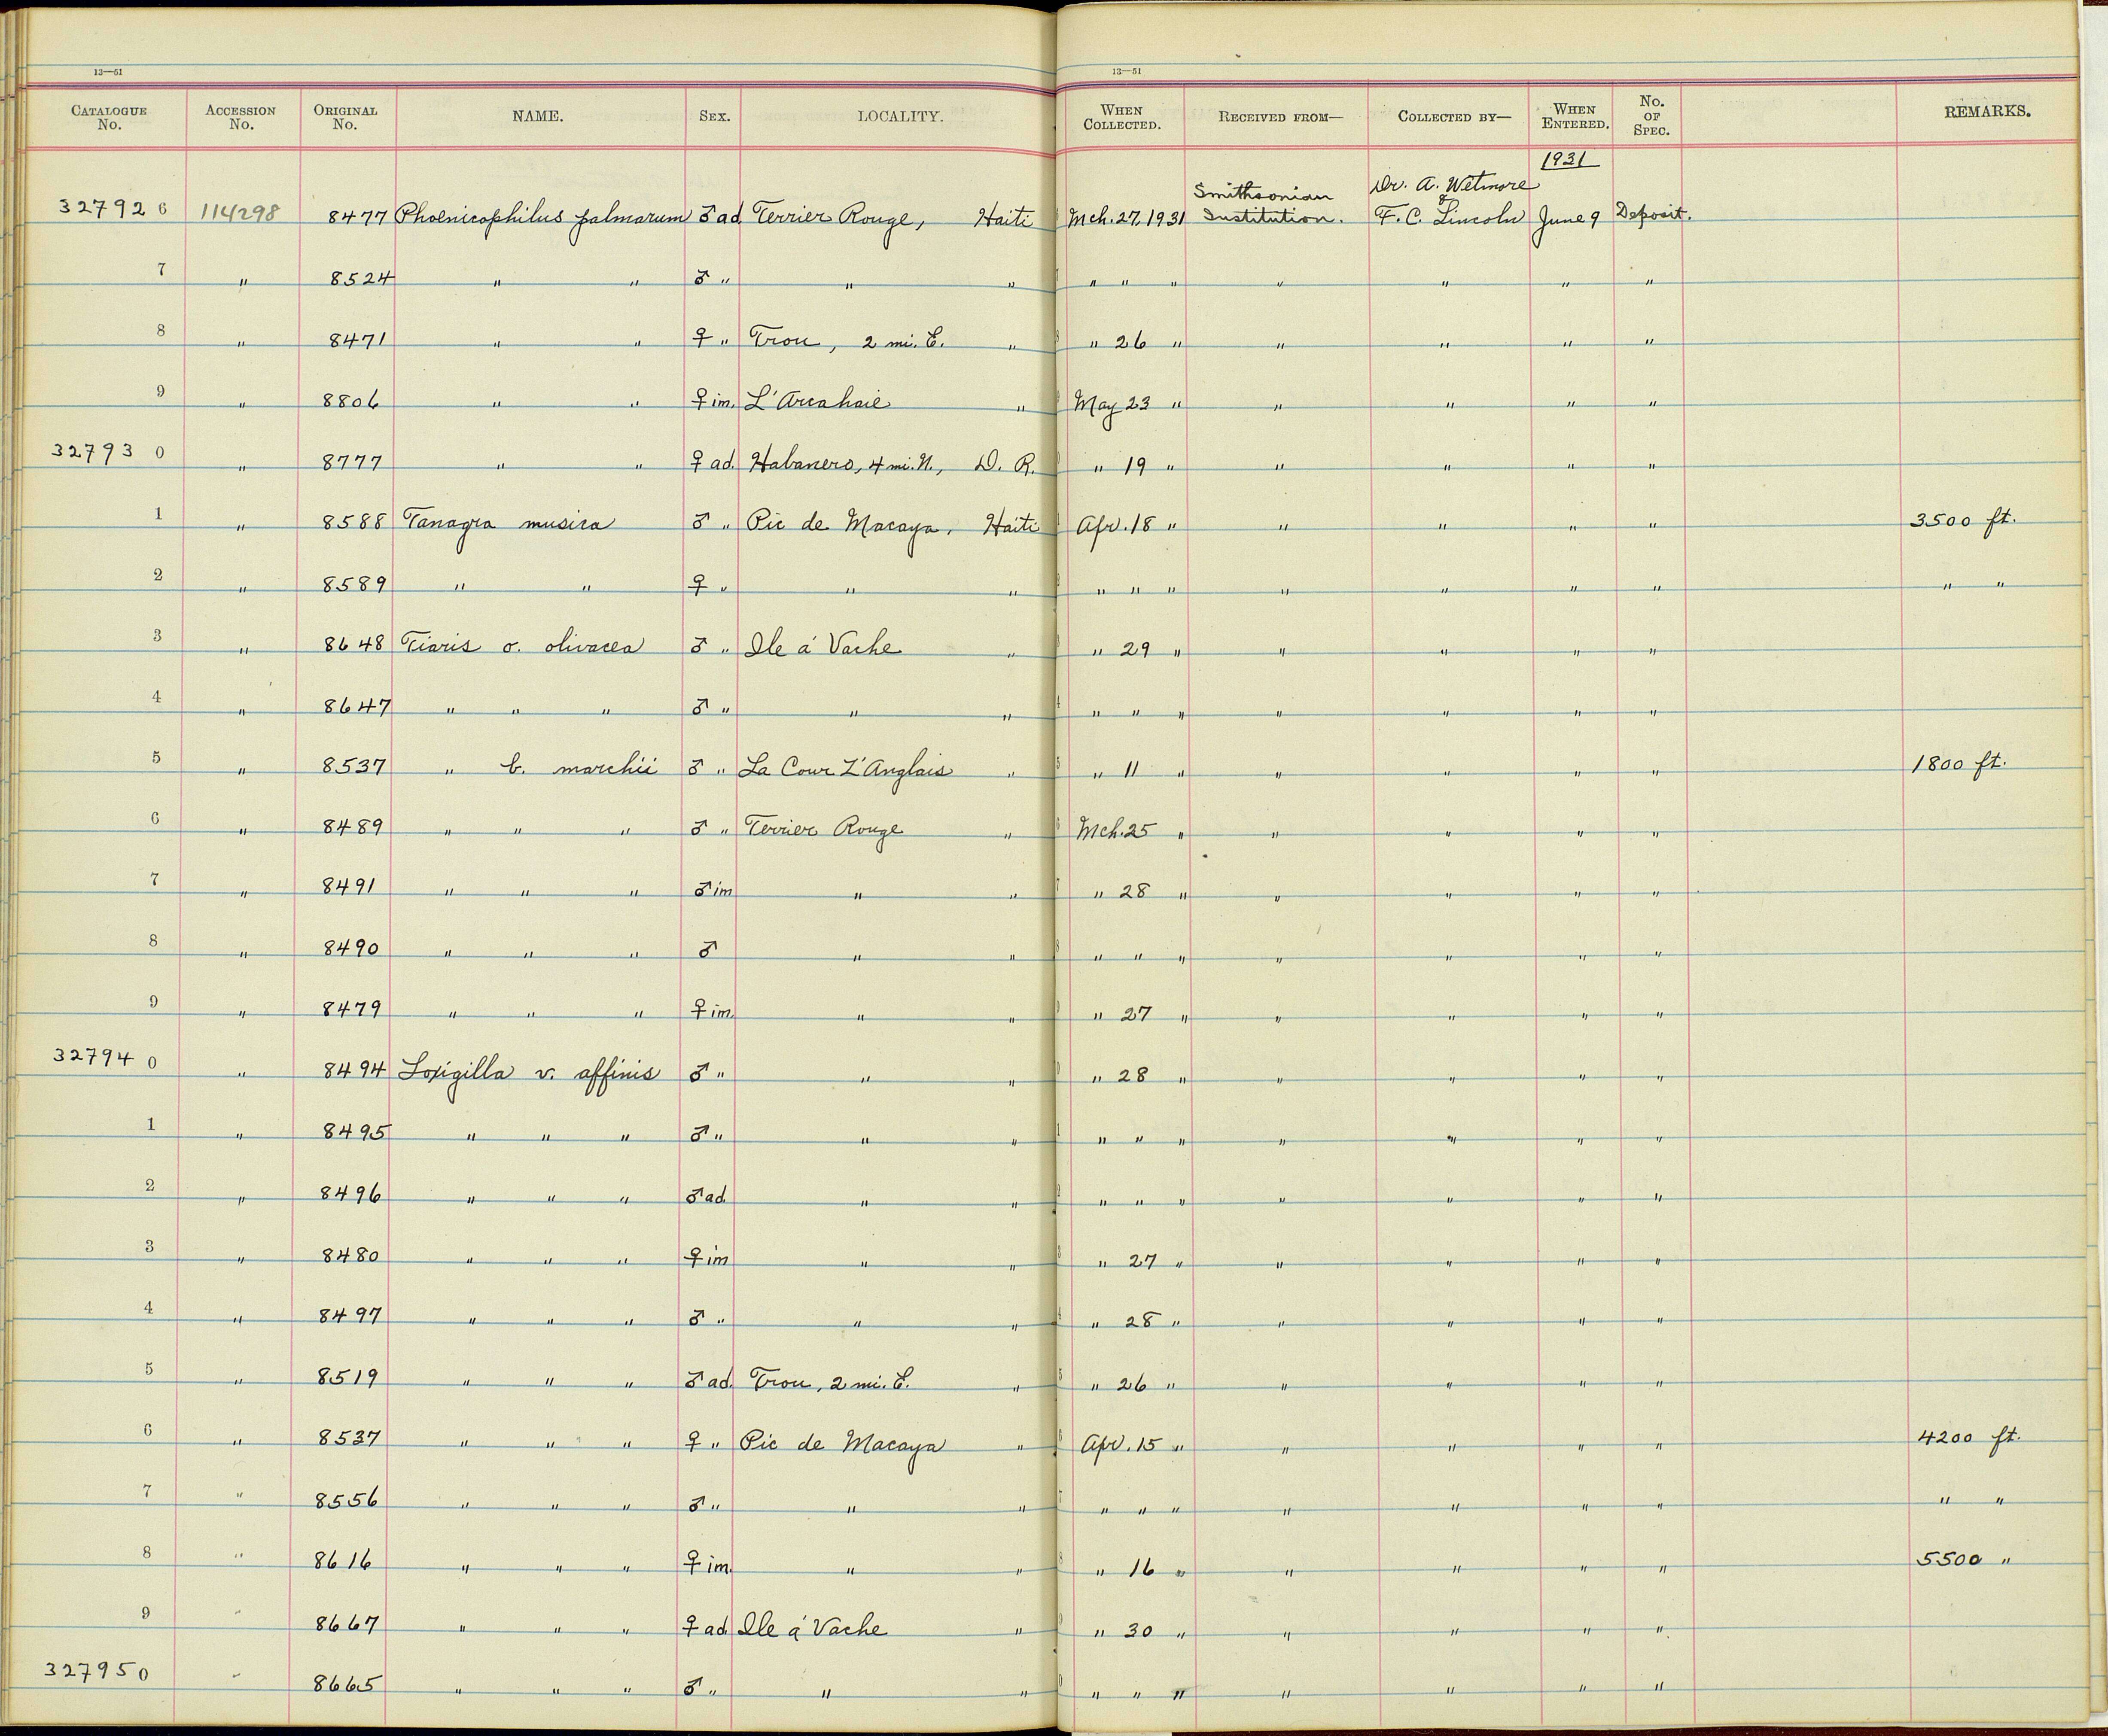 13—51 13—51
CATALOGUE No. ACCESSION No. ORIGINAL No. NAME. SEX. LOCALITY. WHEN COLLECTED. RECEIVED FROM— COLLECTED BY— WHEN ENTERED. No. OF SPEC. REMARKS.
1931
Smithsonian Dr. A. Wetmore &
32792 6 114298 8477 Phoenicophilus palmarum ♂ ad Terrier Rouge, Haiti Mch. 27, 1931 Institution. F. C. Lincoln June 9 Deposit.
7 " 8524 " " ♂ " " " " " " " " " "
8 " 8471 " " ♀ " Trou, 2 mi. E. " " 26 " " " " "
9 " 8806 " " ♀ im. L'Arcahaie " May 23 " " " " "
32793 0 " 8777 " " ♀ ad. Habanero, 4 mi. N., D. R. " 19 " " " " "
1 " 8588 Tanagra musica ♂ " Pic de Macaya, Haiti Apr. 18 " " " " " 3500 ft.
2 " 8589 " " ♀ " " " " " " " " " " " "
3 " 8648 Tiaris o. olivacea ♂ " Ile á Vache " " 29 " " " " "
4 " 8647 " " " ♂ " " " " " " " " " "
5 " 8537 " b. marchii ♂ " La Cour Z'Anglais " " 11 " " " " " 1800 ft.
6 " 8489 " " " ♂ " Terrier Rouge " Mch. 25 " " " " "
7 " 8491 " " " ♂ im " " " 28 " " " " "
8 " 8490 " " " ♂ " " " " " " " " "
9 " 8479 " " " ♀ im. " " " 27 " " " " "
32794 0 " 8494 Loxigilla v. affinis ♂ " " " " 28 " " " " "
1 " 8495 " " " ♂ " " " " " " " " " "
2 " 8496 " " " ♂ ad. " " " " " " " " "
3 " 8480 " " " ♀ im " " " 27 " " " " "
4 " 8497 " " " ♂ " " " " 28 " " " " "
5 " 8519 " " " ♂ ad. Trou, 2 mi. E. " " 26 " " " " "
6 " 8537 " " " ♀ " Pic de Macaya " Apr. 15 " " " " " 4200 ft.
7 " 8556 " " " ♂ " " " " " " " " " " " "
8 " 8616 " " " ♀ im. " " " 16 " " " " " 5500 "
9 " 8667 " " " ♀ ad. Ile á Vache " " 30 " " " " "
32795 0 " 8665 " " " ♂ " " " " " " " " " "